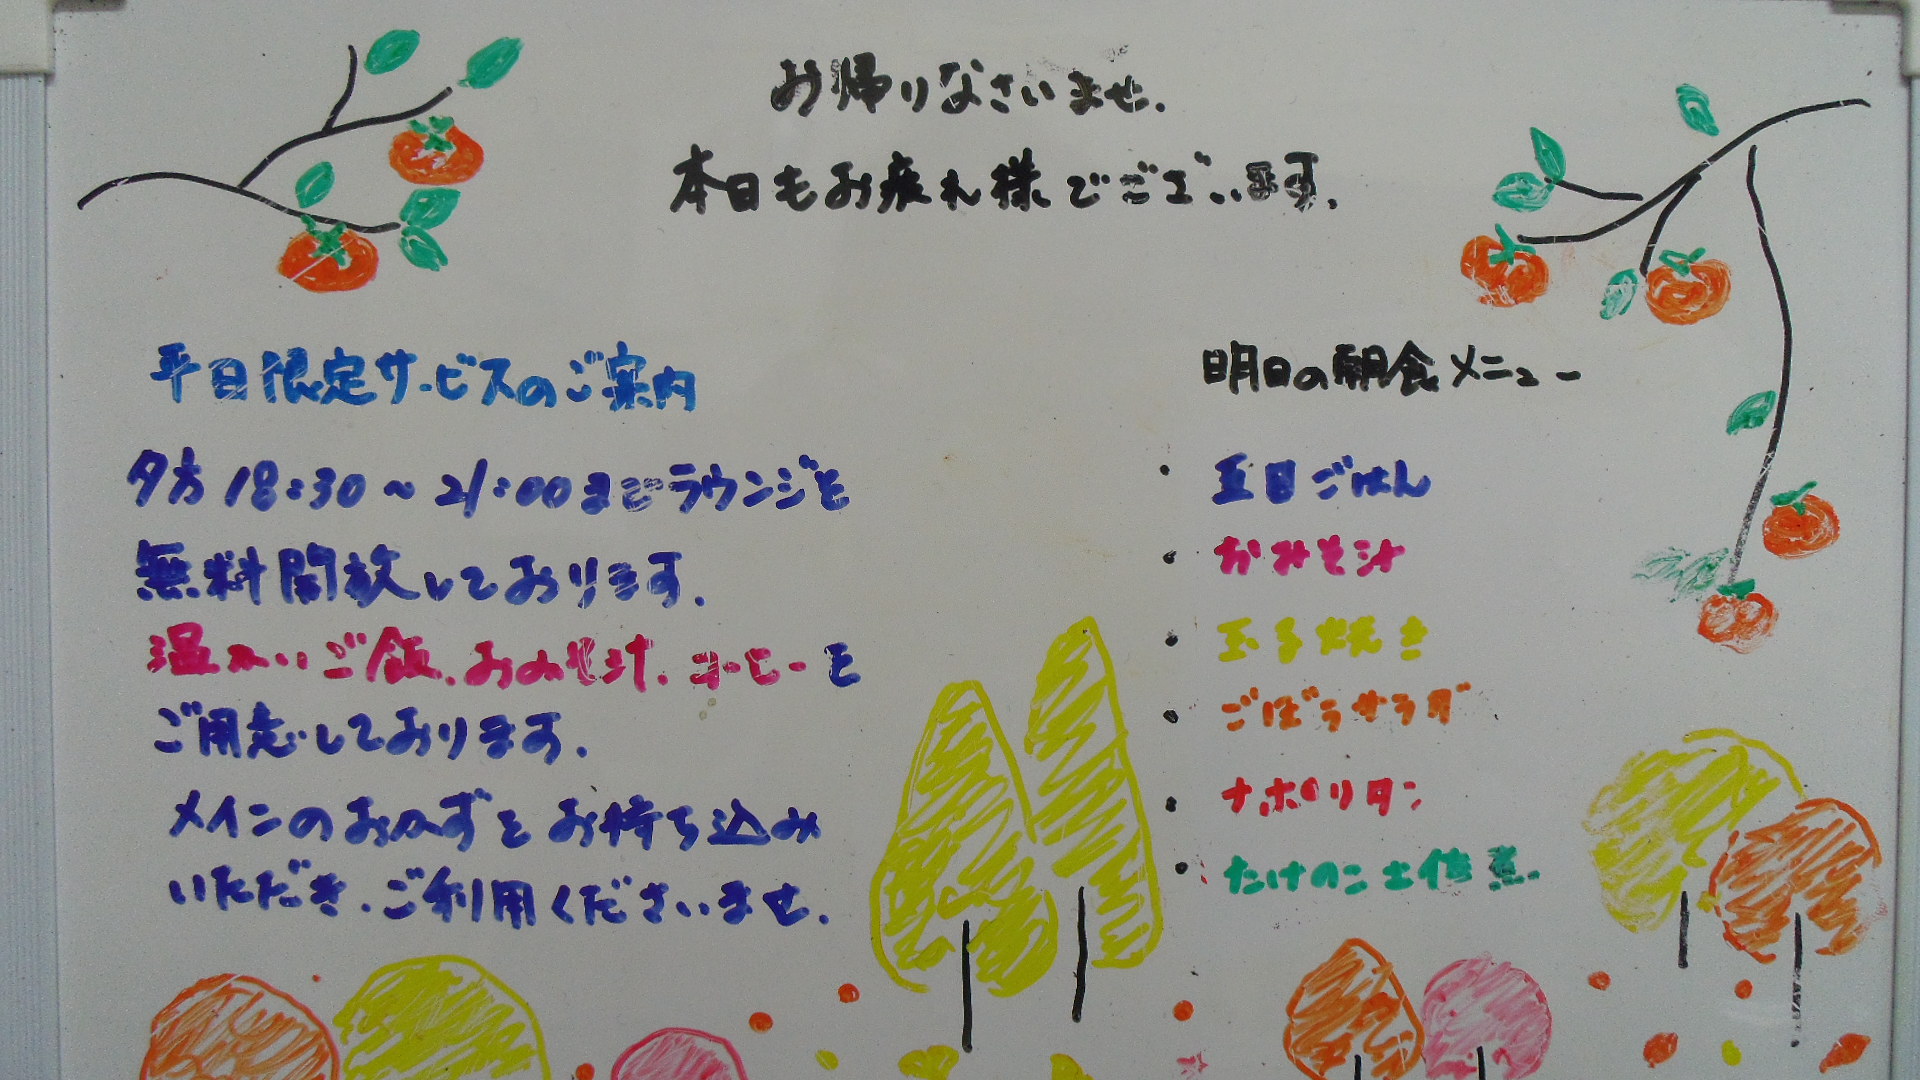 お帰りなさいませ.
本日もお疲れ様でございます.
平日限定サービスのご案内
夕方18:30～21:00までラウンジを
無料開放しております.
温かいご飯.おみそ汁.コーヒーを
ご用意しております.
メインのおかずをお持ち込み
いただき.ご利用くださいませ.
明日の朝食メニュー
・五目ごはん
・かみそ汁
・玉子焼き
・ごぼうサラダ
・ナポリタン
・たけのこ土佐煮